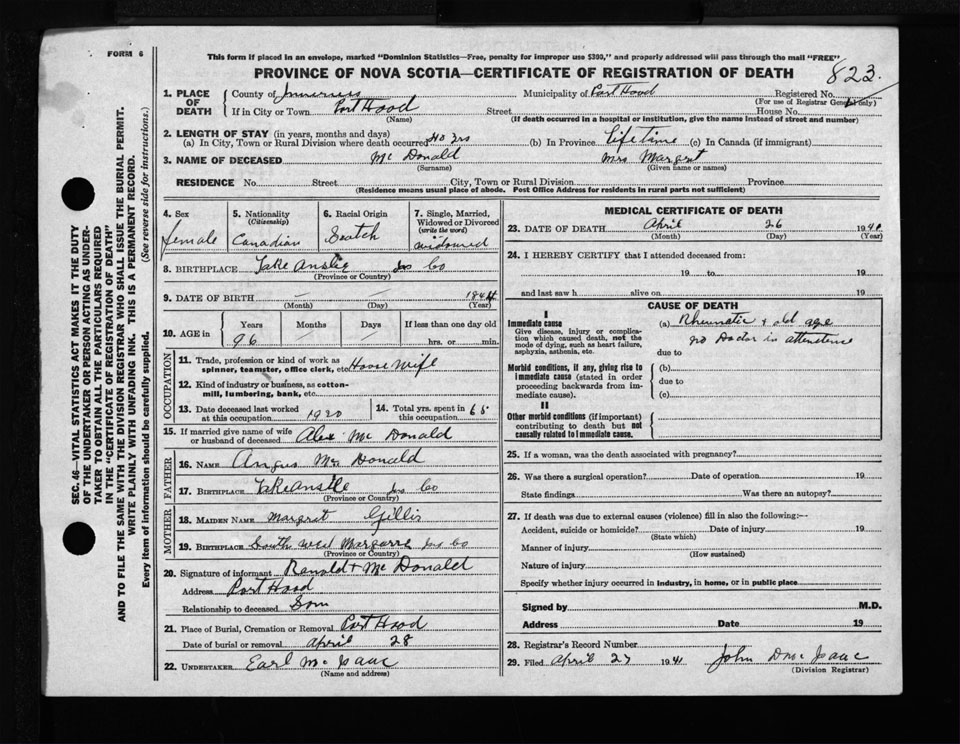 FORM 6
This form if placed in an envelope, marked "Dominion Statistics—Free, penalty for improper use $300," and properly addressed will pass through the mail "FREE"
PROVINCE OF NOVA SCOTIA—CERTIFICATE OF REGISTRATION OF DEATH
823.
1. PLACE OF DEATH
County of Inverness Municipality of Port Hood Registered No.
(For use of Registrar General only)
If in City or Town Port Hood Street House No.
(Name) (If death occurred in a hospital or institution, give the name instead of street and number)
2. LENGTH OF STAY (in years, months and days)
(a) In City, Town or Rural Division where death occurred 40 yrs (b) In Province Life Time (c) In Canada (if immigrant)
3. NAME OF DECEASED Mc Donald Mrs Margret
(Surname) (Given name or names)
RESIDENCE No. Street City, Town or Rural Division Province
(Residence means usual place of abode. Post Office Address for residents in rural parts not sufficient)
4. Sex female
5. Nationality (Citizenship) Canadian
6. Racial Origin Scotch
7. Single, Married, Widowed or Divorced (write the word) widowed
8. BIRTHPLACE Lake Anslie Ins Co
(Province or Country)
9. DATE OF BIRTH / / 1844
(Month) (Day) (Year)
10. AGE in Years Months Days If less than one day old
96 / / hrs. or min.
OCCUPATION
11. Trade, profession or kind of work as spinner, teamster, office clerk, etc House Wife
12. Kind of industry or business, as cotton-mill, lumbering, bank, etc.
13. Date deceased last worked at this occupation 1920
14. Total yrs. spent in this occupation 65
15. If married give name of wife or husband of deceased Alex Mc Donald
FATHER
16. NAME Angus Mc Donald
17. BIRTHPLACE Lake Anslie Ins Co
(Province or Country)
MOTHER
18. MAIDEN NAME Margret Gillis
19. BIRTHPLACE South West Margarre Ins Co
(Province or Country)
20. Signature of informant Ranold Mc Donald
Address Port Hood
Relationship to deceased Son
21. Place of Burial, Cremation or Removal Port Hood
Date of burial or removal April 28
22. UNDERTAKER Earl Mc Isaac
(Name and address)
MEDICAL CERTIFICATE OF DEATH
23. DATE OF DEATH April 26 194
(Month) (Day) (Year)
24. I HEREBY CERTIFY that I attended deceased from:
19 to 19
and last saw h alive on 19
CAUSE OF DEATH
I
Immediate cause
Give disease, injury or complication which caused death, not the mode of dying, such as heart failure, asphyxia, asthenia, etc.
(a) Rhumatic + old age
no Doctor in attendence
due to
Morbid conditions, if any, giving rise to immediate cause (stated in order proceeding backwards from immediate cause).
(b)
due to
(c)
II
Other morbid conditions (if important) contributing to death but not causally related to immediate cause.
25. If a woman, was the death associated with pregnancy?
26. Was there a surgical operation? Date of operation 19
State findings Was there an autopsy?
27. If death was due to external causes (violence) fill in also the following:—
Accident, suicide or homicide? Date of injury 19
(State which)
Manner of injury
(How sustained)
Nature of injury
Specify whether injury occurred in industry, in home, or in public place
Signed by M.D.
Address Date 19
28. Registrar's Record Number
29. Filed April 27 1941 John D Mc Isaac
(Division Registrar)
SEC. 46—VITAL STATISTICS ACT MAKES IT THE DUTY
OF THE UNDERTAKER OR PERSON ACTING AS UNDER-
TAKER TO OBTAIN ALL THE PARTICULARS REQUIRED
IN THE "CERTIFICATE OF REGISTRATION OF DEATH"
AND TO FILE THE SAME WITH THE DIVISION REGISTRAR WHO SHALL ISSUE THE BURIAL PERMIT.
WRITE PLAINLY WITH UNFADING INK. THIS IS A PERMANENT RECORD.
Every item of information should be carefully supplied. (See reverse side for instructions.)